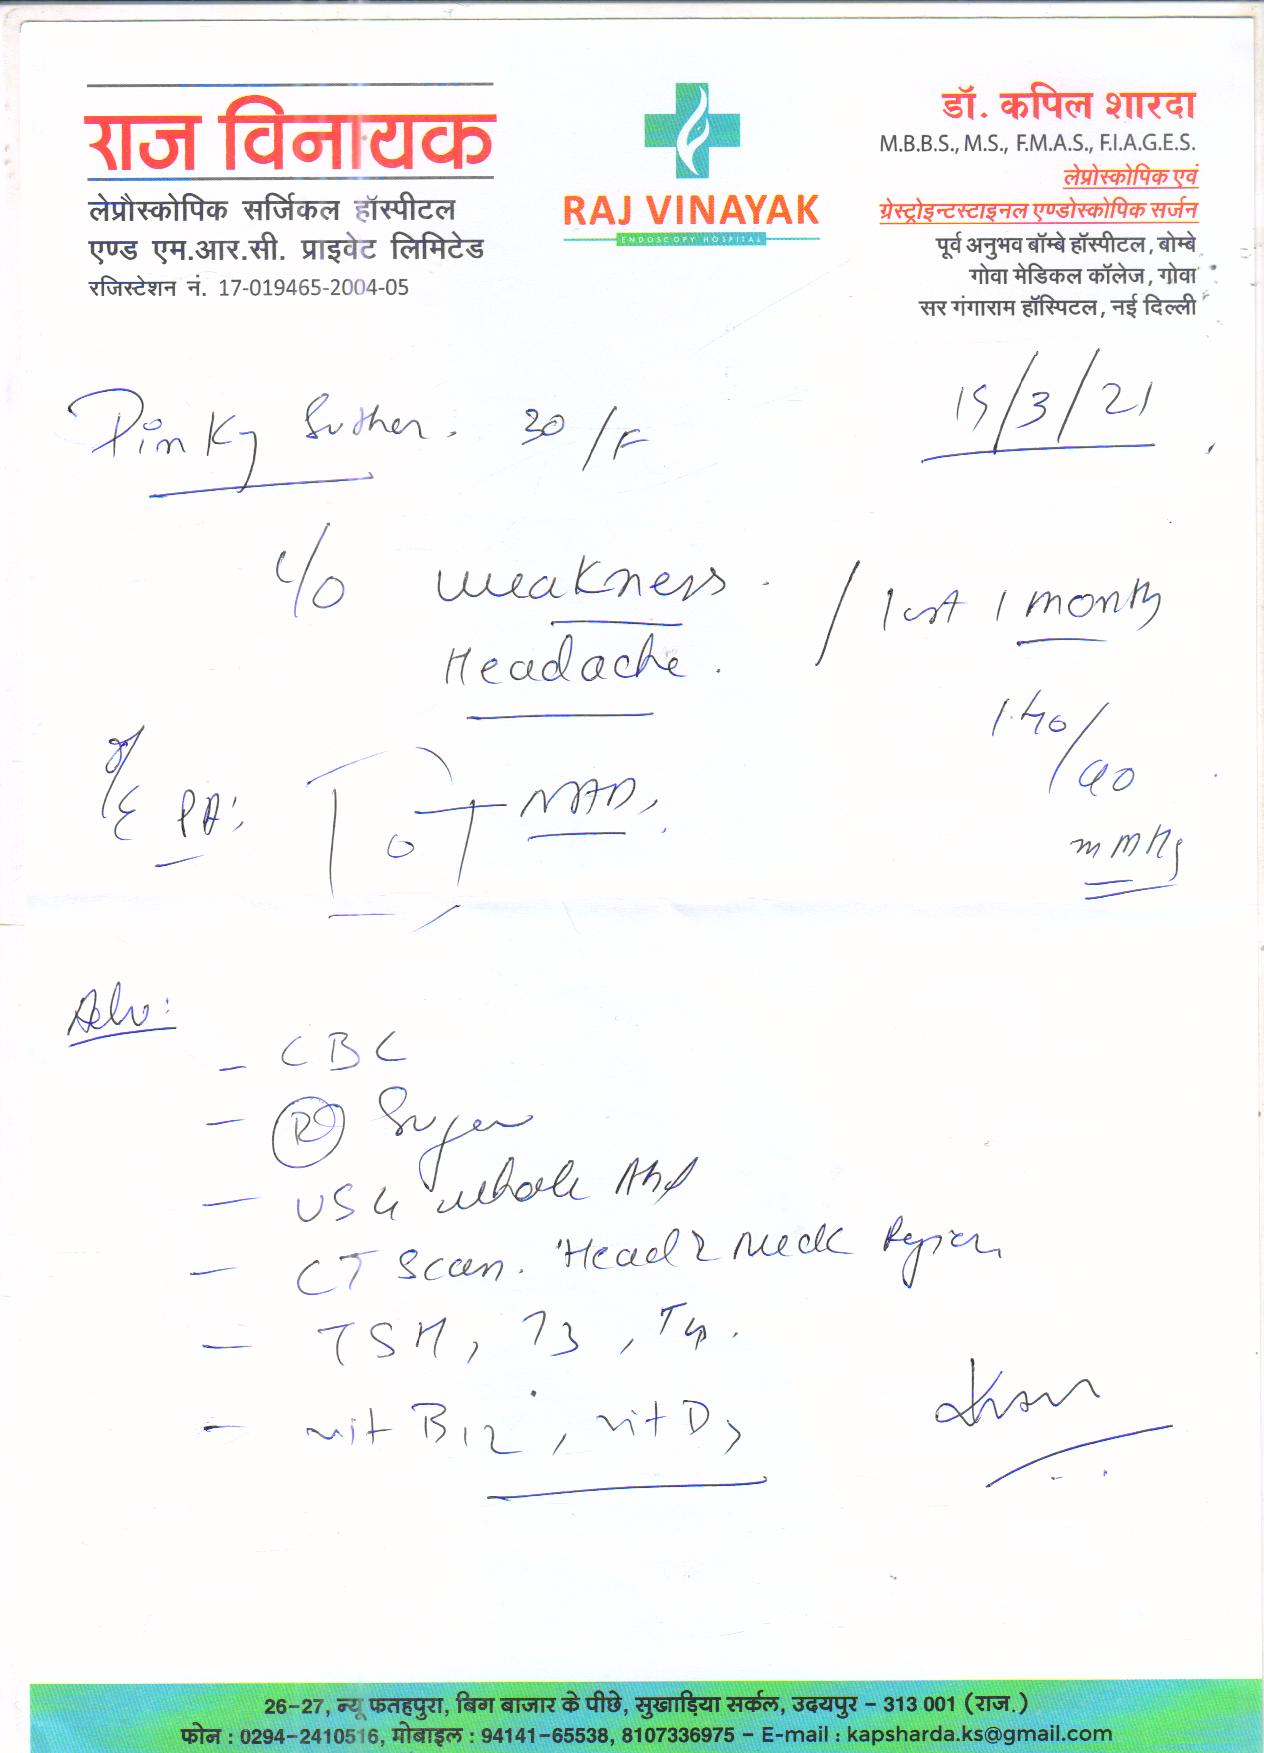 राज विनायक
लेप्रौस्कोपिक सर्जिकल हॉस्पीटल
एण्ड एम.आर.सी. प्राइवेट लिमिटेड
रजिस्टेशन नं. 17-019465-2004-05
RAJ VINAYAK
ENDOSCOPY HOSPITAL
डॉ. कपिल शारदा
M.B.B.S., M.S., F.M.A.S., F.I.A.G.E.S.
लेप्रोस्कोपिक एवं
ग्रेस्ट्रोइन्टस्टाइनल एण्डोस्कोपिक सर्जन
पूर्व अनुभव बॉम्बे हॉस्पीटल, बोम्बे
गोवा मेडिकल कॉलेज, गोवा
सर गंगाराम हॉस्पिटल, नई दिल्ली
15/3/21
Pinky Suther. 30/F
c/o weakness. / last 1 month
Headache.
140/90
mmHg
O/E PA: NAD,
Adv:
- CBC
- (R) Sugar
- USG whole Abd
- CT Scan. Head & Neck Region
- TSH, T3, T4.
- vit B12, vit D3
26-27, न्यू फतहपुरा, बिग बाजार के पीछे, सुखाड़िया सर्कल, उदयपुर - 313 001 (राज.)
फोन : 0294-2410516, मोबाइल : 94141-65538, 8107336975 - E-mail : kapsharda.ks@gmail.com